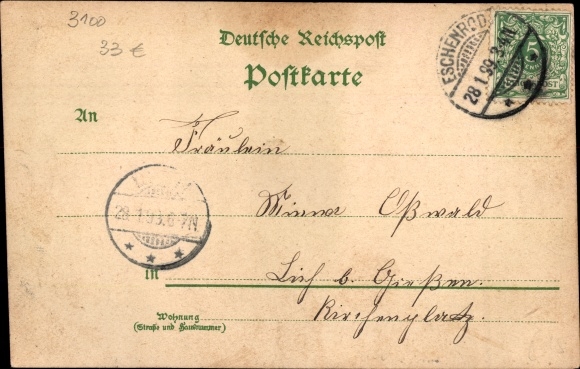 3100
33 €
Deutsche Reichspost
Postkarte
ESCHENROD
28 1 99. 3-4N
5
An
Fräulein
Minna Oßwald
28.1.99.6-7N
in
Lich b. Gießen.
Kirchenplatz.
Wohnung
(Straße und Hausnummer)